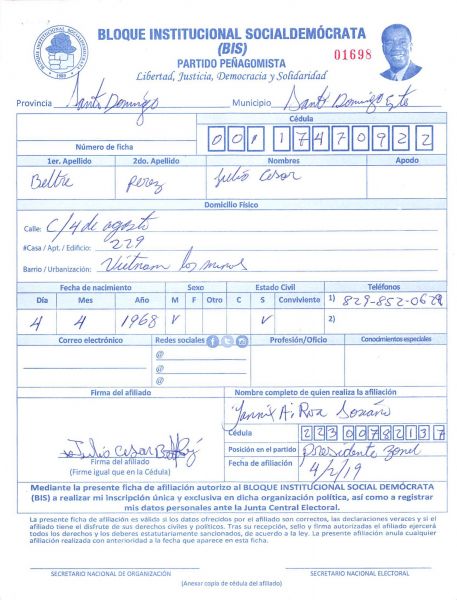 BLOQUE INSTITUCIONAL SOCIALDEMÓCRATA
(BIS)
PARTIDO PEÑAGOMISTA
Libertad, Justicia, Democracia y Solidaridad
01698
Provincia Santo Domingo Municipio Santo Domingo Este
Número de ficha
Cédula
001 1747092 2
1er. Apellido 2do. Apellido Nombres Apodo
Beltre perez Julio Cesar
Domicilio Físico
Calle: C/4 de agosto
#Casa / Apt. / Edificio: 229
Barrio / Urbanización: Vietnam los minos
Fecha de nacimiento Sexo Estado Civil Teléfonos
Día Mes Año M F Otro C S Conviviente 1) 829-852-0629
4 4 1968 ✓ ✓ 2)
Correo electrónico Redes sociales Profesión/Oficio Conocimientos especiales
@
@
@
Firma del afiliado Nombre completo de quien realiza la afiliación
Yannix A. Roa Soriano
Cédula
223 0078213 7
Julio Cesar
Firma del afiliado
(Firme igual que en la Cédula)
Posición en el partido Presidente Zonal
Fecha de afiliación 4/2/19
Mediante la presente ficha de afiliación autorizo al BLOQUE INSTITUCIONAL SOCIAL DEMÓCRATA
(BIS) a realizar mi inscripción única y exclusiva en dicha organización política, así como a registrar
mis datos personales ante la Junta Central Electoral.
La presente ficha de afiliación es válida si los datos ofrecidos por el afiliado son correctos, las declaraciones veraces y si el
afiliado tiene el disfrute de sus derechos civiles y políticos. Tras su recepción, sello y firma autorizadas el afiliado ejercerá
todos los derechos y los deberes estatutariamente sancionados, de acuerdo a la ley. La presente afiliación anula cualquier
afiliación realizada con anterioridad a la fecha que aparece en esta ficha.
SECRETARIO NACIONAL DE ORGANIZACIÓN SECRETARIO NACIONAL ELECTORAL
(Anexar copia de cédula del afiliado)